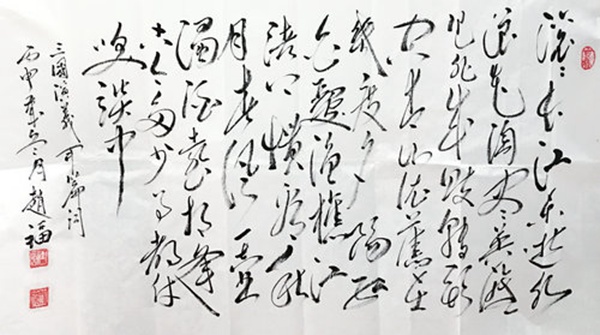 滚滚长江东逝水
浪花淘尽英雄
是非成败转头
空青山依旧在
几度夕阳红
白发渔樵江
渚上惯看秋
月春风一壶
浊酒喜相逢
古今多少事都付
笑谈中
三國演義开篇词
丙申 月趙福